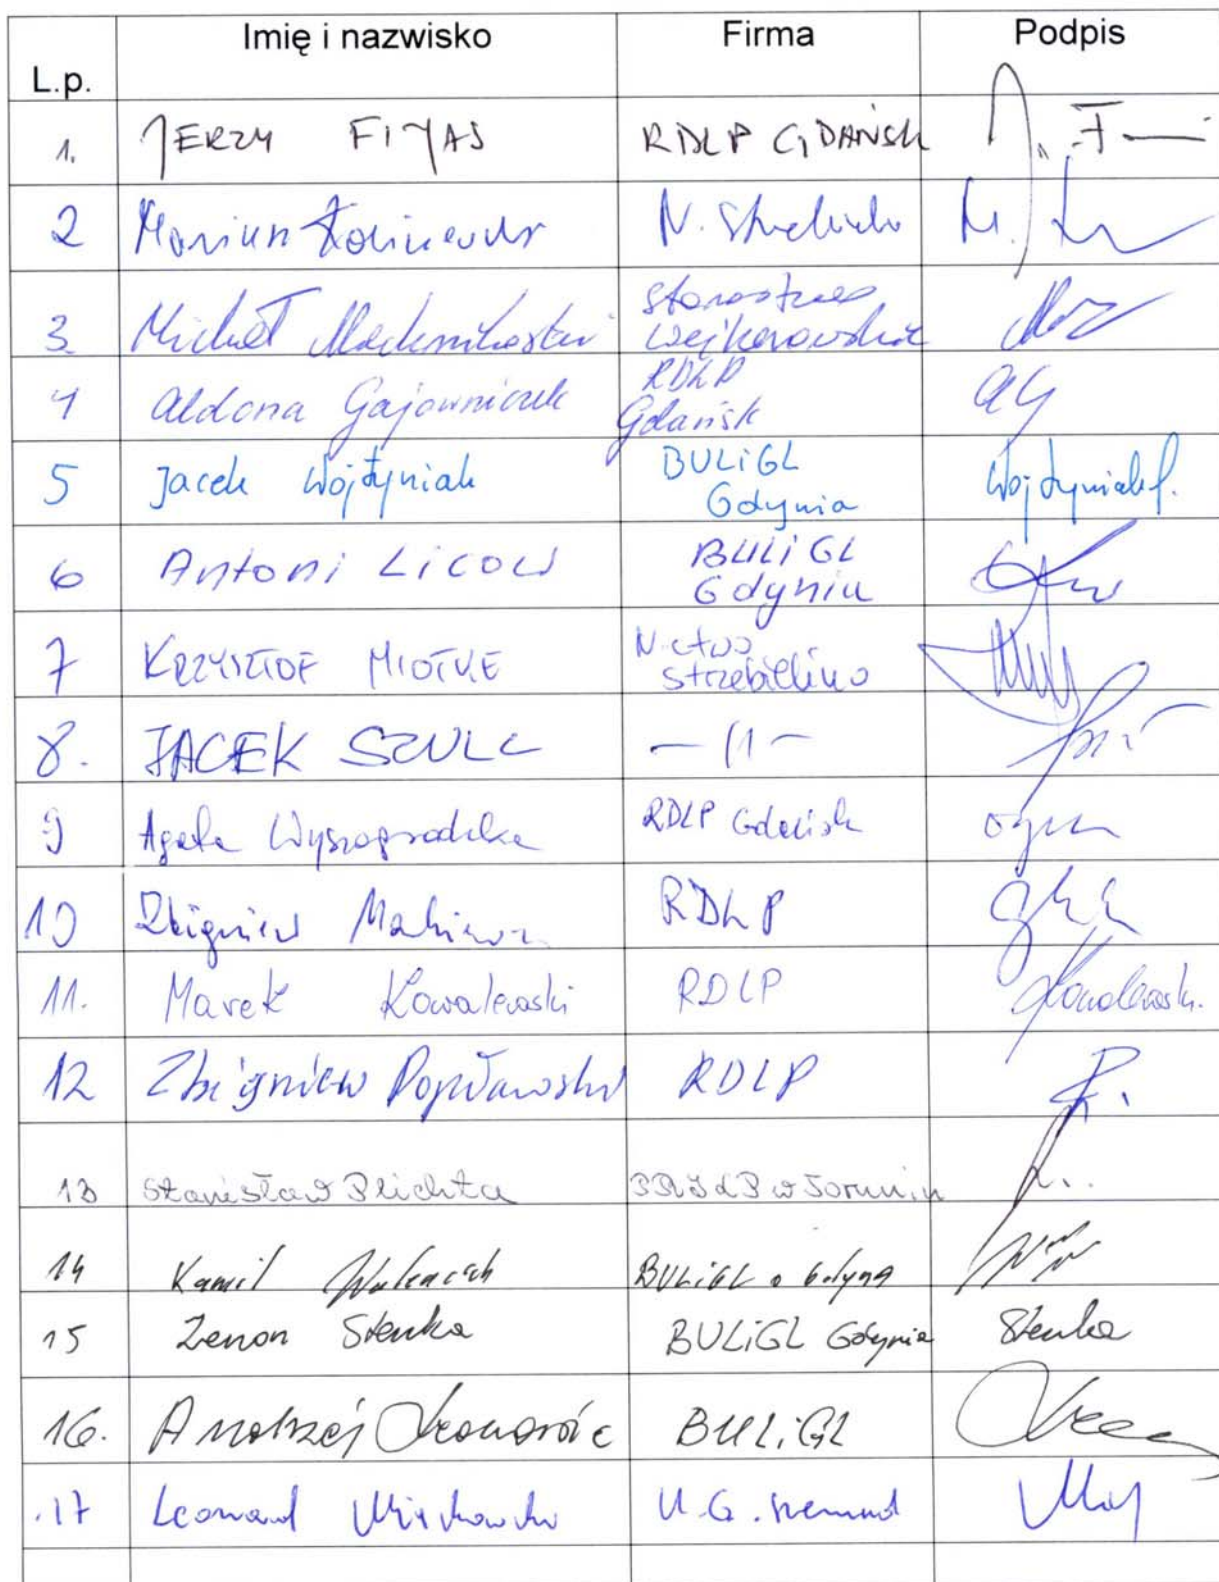 Imię i nazwisko Firma Podpis
L.p.
1. JERZY FIJAS RDLP GDAŃSK
2 Marian N.
3. Michał Starostwo
Wejherowskie
4 Aldona Gajowniczek RDLP
Gdańsk AG
5 Jacek Wojtyniak BULiGL
Gdynia Wojtyniak J.
6 Antoni Licow BULiGL
Gdynia
7 KRZYSZTOF MIOTKE N-ctwo
Strzebielino
8. JACEK SZULC - 11 -
9 Agata Wyszogrodzka RDLP Gdańsk
10 Zbigniew RDLP
11. Marek Kowalewski RDLP Kowalewski.
12 Zbigniew Popławski RDLP
13 Stanisław Plichta w Toruniu
14 Kamil BULiGL o Gdynia
15 Zenon Stenka BULiGL Gdynia Stenka
16. Andrzej BULiGL
17 Leonard U.G. Szemud